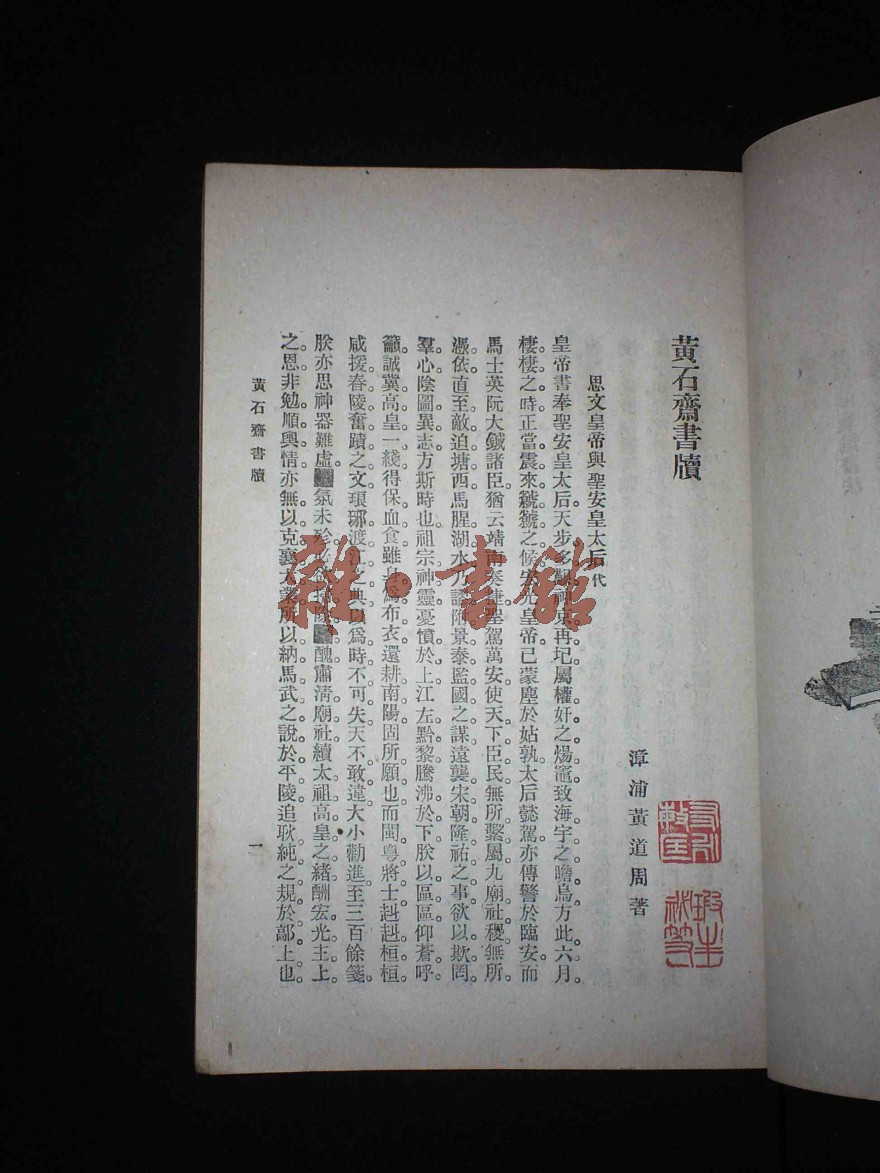 黃石齋書牘
漳浦黃道周著
思文皇帝與聖安皇太后代
皇帝書奉聖安皇太后天步多京再圮屬權奸之煬竈致海宇之瞻烏方此六月
棲棲之時正當震來虩虩之候光皇帝已蒙塵於姑孰太后懿駕亦傳警於臨安而
馬士英阮大鋮諸臣猶云靖南聖駕萬安使天下臣民無所繫屬九廟社稷無所
憑依直至敵迫塘西馬腥湖水乃景泰監國之謀遠襲宋朝隆祐之事欲以欺罔
羣心陰圖異志方斯時也祖宗神靈憂憤於上江左黔黎騰沸於下朕以區區仰蒼呼
籲誠冀高皇一綫得保血食雖身爲布衣還耕南陽固所願也而閩粵將士赳赳桓桓
咸援舂陵奮蹟之文琅琊渡江之典以爲時不可失天不敢違大小勸進至三百餘箋
朕亦思神器難虛氛未殄必醜肅清廟社續太祖高皇之緒酬宏光主上
之恩非勉順輿情亦無以克襄大業所以納馬武之說於平陵追耿純之規於鄗上也
黃石齋書牘
一
雜·書館